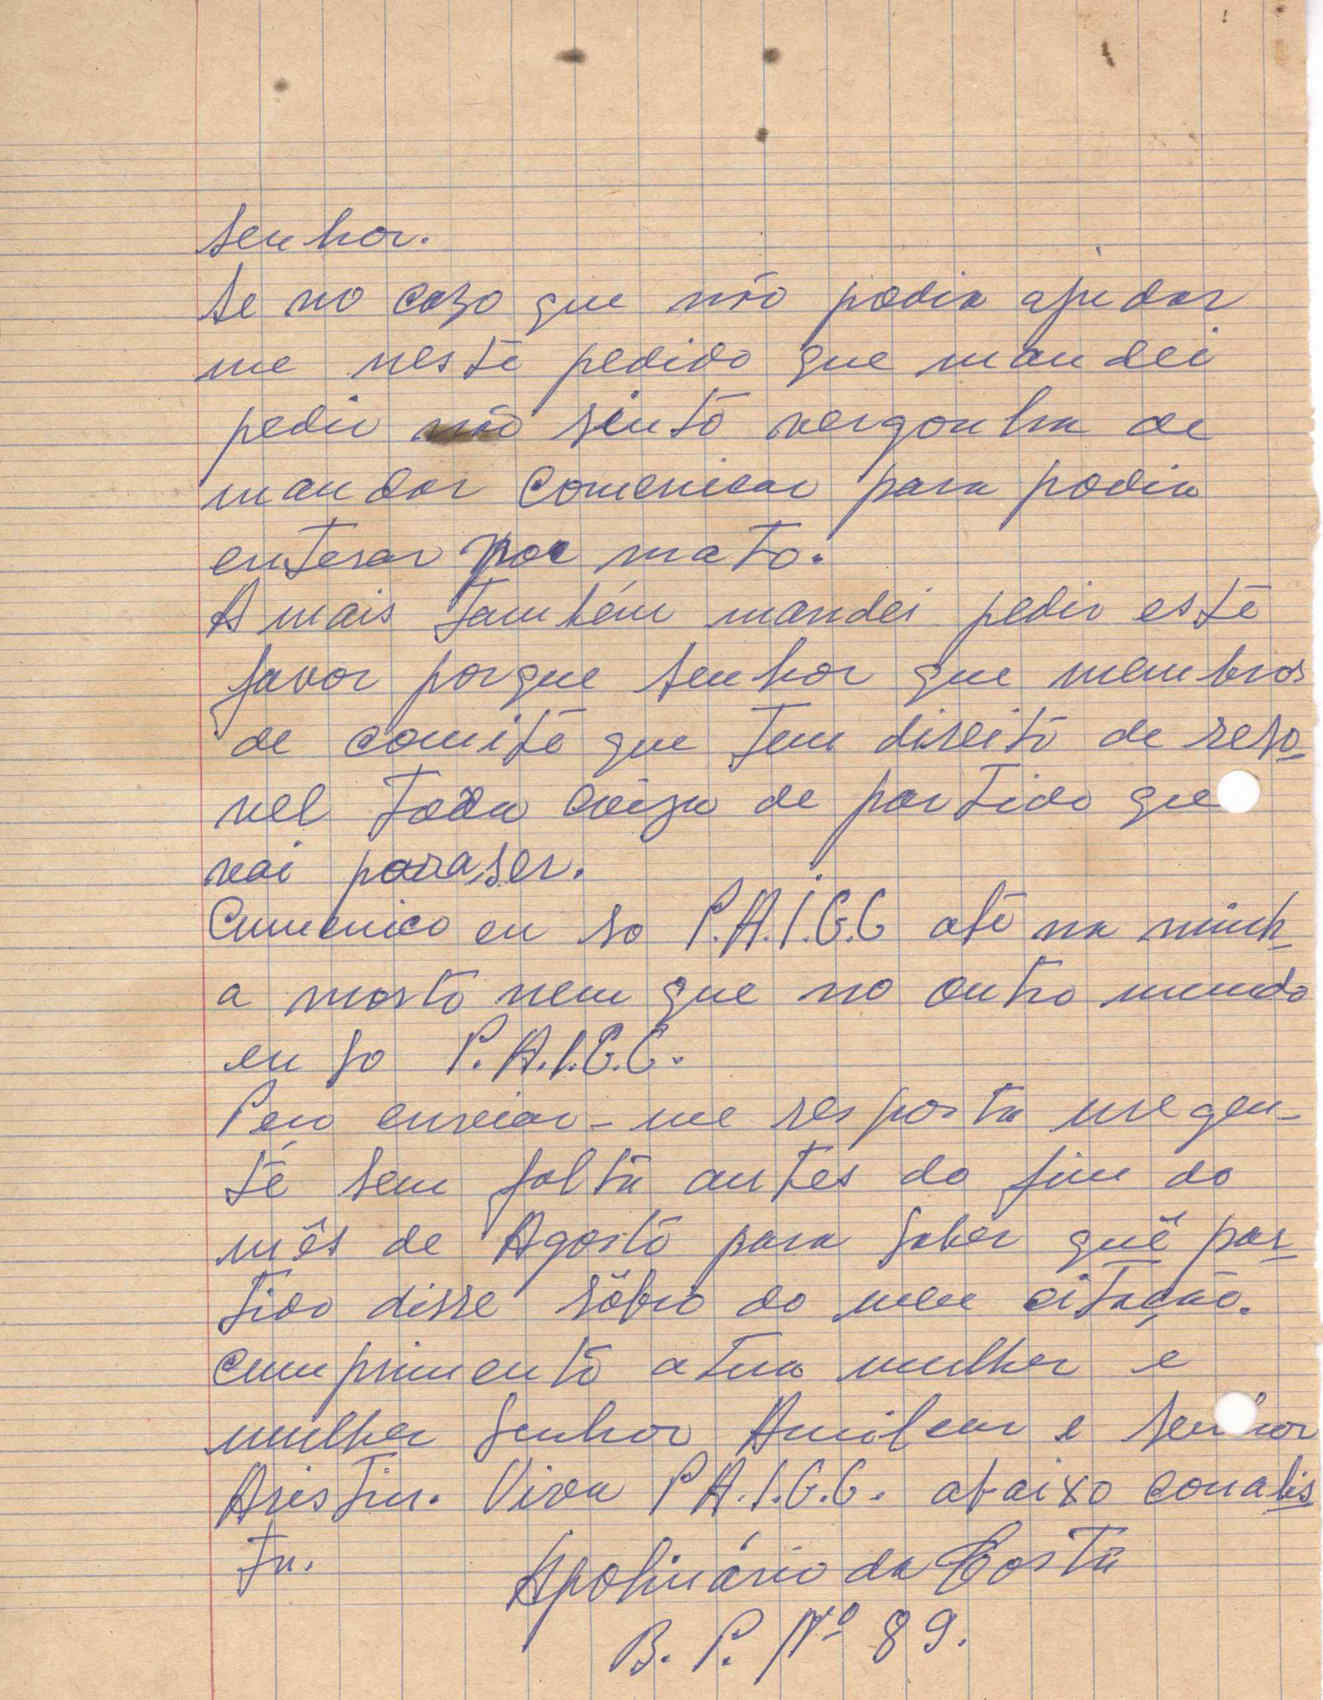 Senhor.
Se no cazo que não podia ajudar
me neste pedido que mandei
pedir não sinto vergonha de
mandar comenicar para podia
enterar por mato.
A mais também mandei pedir este
favor porque Senhor que membros
de comite que tem direito de reso-
vel toda coiza de partido que
vai para ser.
Cumenico eu so P.A.I.G.C até na minh-
a morto nem que no outro mundo
eu so P.A.I.G.C.
Peco enveiar-me resposta uregen-
te sem falta antes do fim do
mês de Agosto para saber quê par-
tido disse sôbro do meu citação.
Cumprimento a tua mulher e
mulher Senhor Amilcar e Senhor
Aristin. Viva P.A.I.G.C. abaixo conalis
ta.
Apolinário da Costa
B. P. Nº 89.